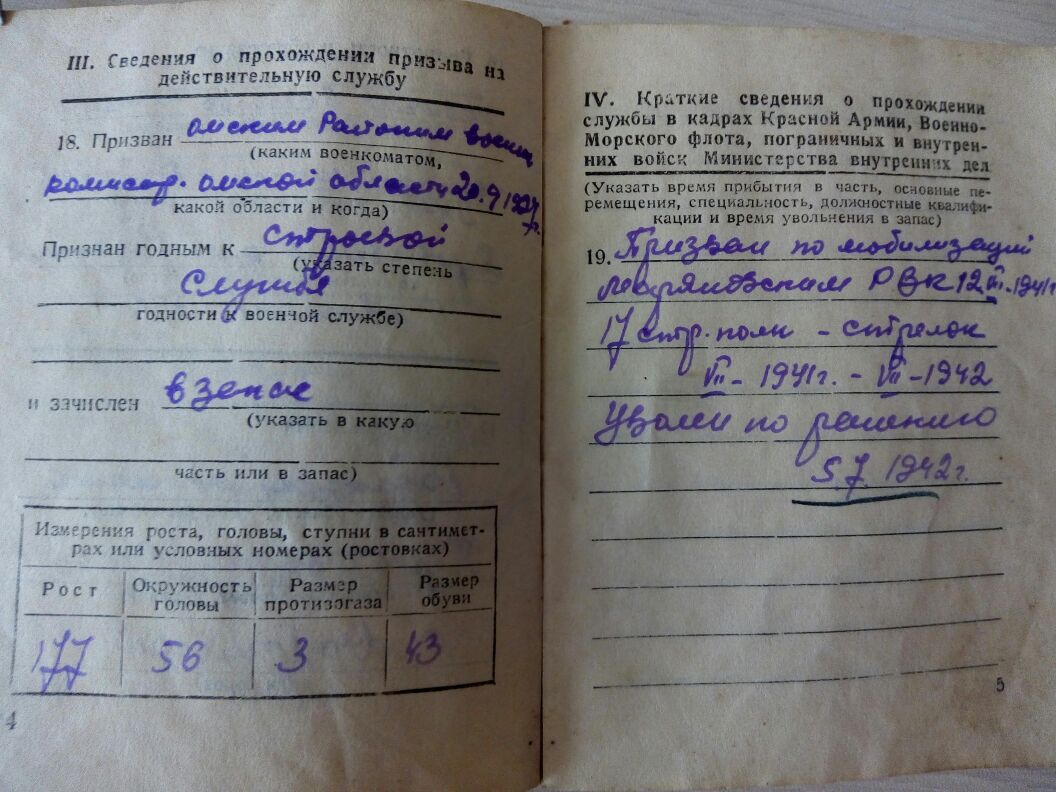 III. Сведения о прохождении призыва на
действительную службу
18. Призван омским Районным военны
(каким военкоматом,
комисар. омской области 20.9 1927 г.
какой области и когда)
Признан годным к строевой
(указать степень
службе
годности к военной службе)
и зачислен в запас
(указать в какую
часть или в запас)
Измерения роста, головы, ступни в сантимет-
рах или условных номерах (ростовках)
Рост
Окружность
головы
Размер
противогаза
Размер
обуви
177
56
3
43
4
IV. Краткие сведения о прохождении
службы в кадрах Красной Армии, Военно-
Морского флота, пограничных и внутрен-
них войск Министерства внутренних дел
(Указать время прибытия в часть, основные пе-
ремещения, специальность, должностные квалифи-
кации и время увольнения в запас)
19. Призван по мобилизаций
марьяновским РВК 12 VII-1941 г
17 стр. полк - стрелок
VII - 1941 г. - VII - 1942
Уволен по ранению
5 7. 1942 г.
5